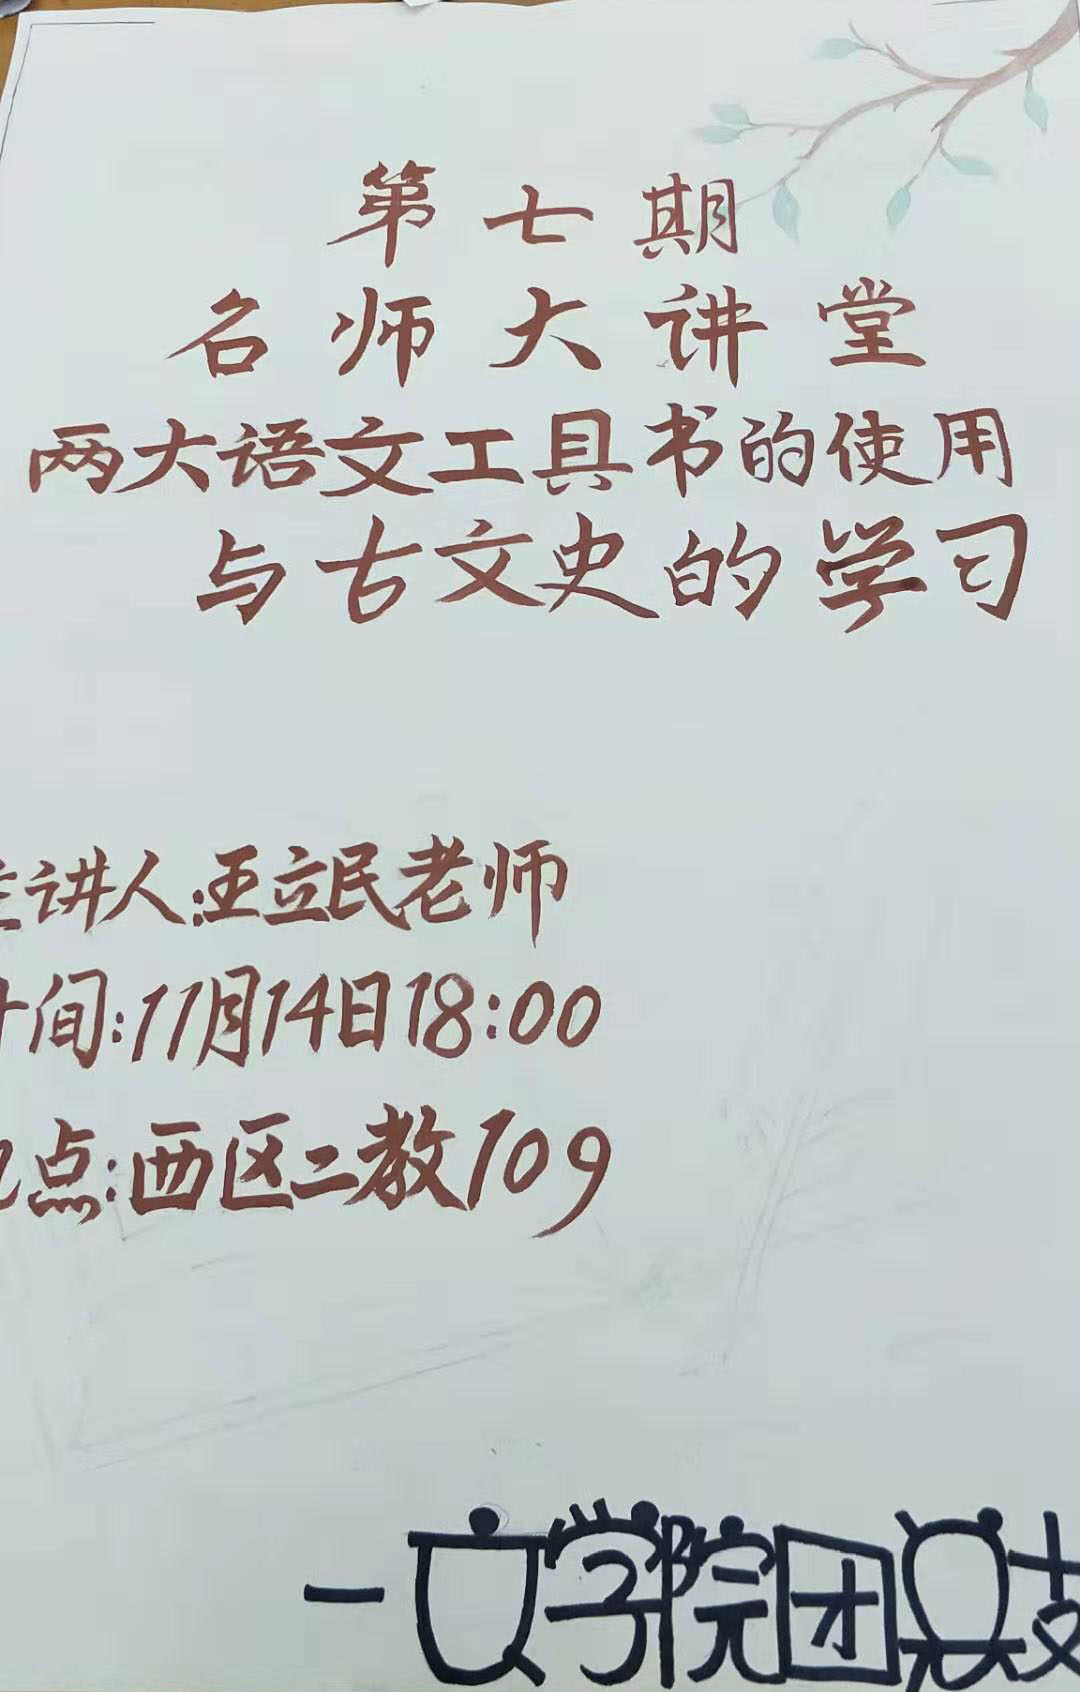 第七期
名师大讲堂
两大语文工具书的使用
与古文史的学习
主讲人:王立民老师
时间:11月14日18:00
地点:西区二教109
一文学院团总支